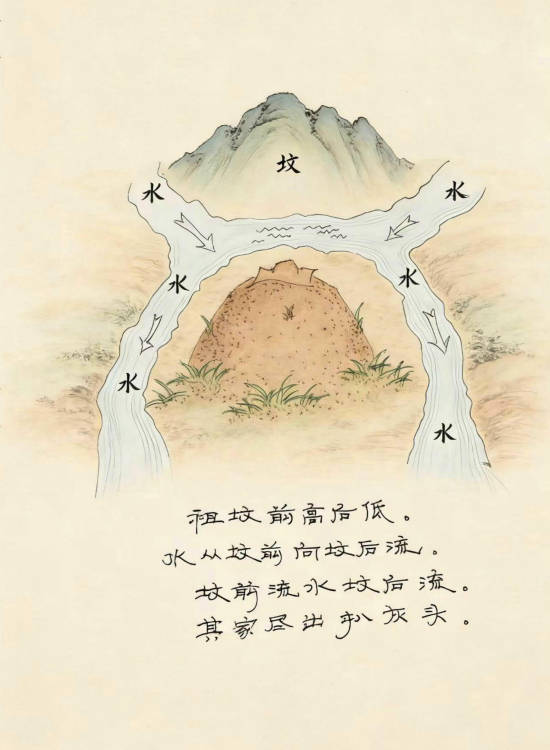 坟
水 水
水 水
水
水
祖坟前高后低。
水从坟前向坟后流。
坟前流水坟后流。
其家尽出扒灰头。